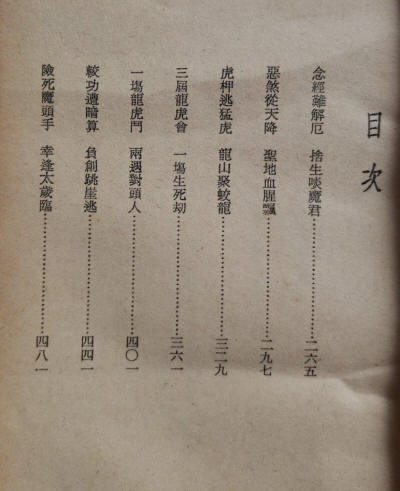 目次
念經難解厄 捨生啖魔君……二六五
惡煞從天降 聖地血腥飄……二九七
虎柙逃猛虎 龍山聚蛟龍……三二九
三屆龍虎會 一塲生死劫……三六一
一塲龍虎鬥 兩遇對頭人……四〇一
較功遭暗算 負創跳崖逃……四四一
險死魔頭手 幸逢太歲臨……四八一